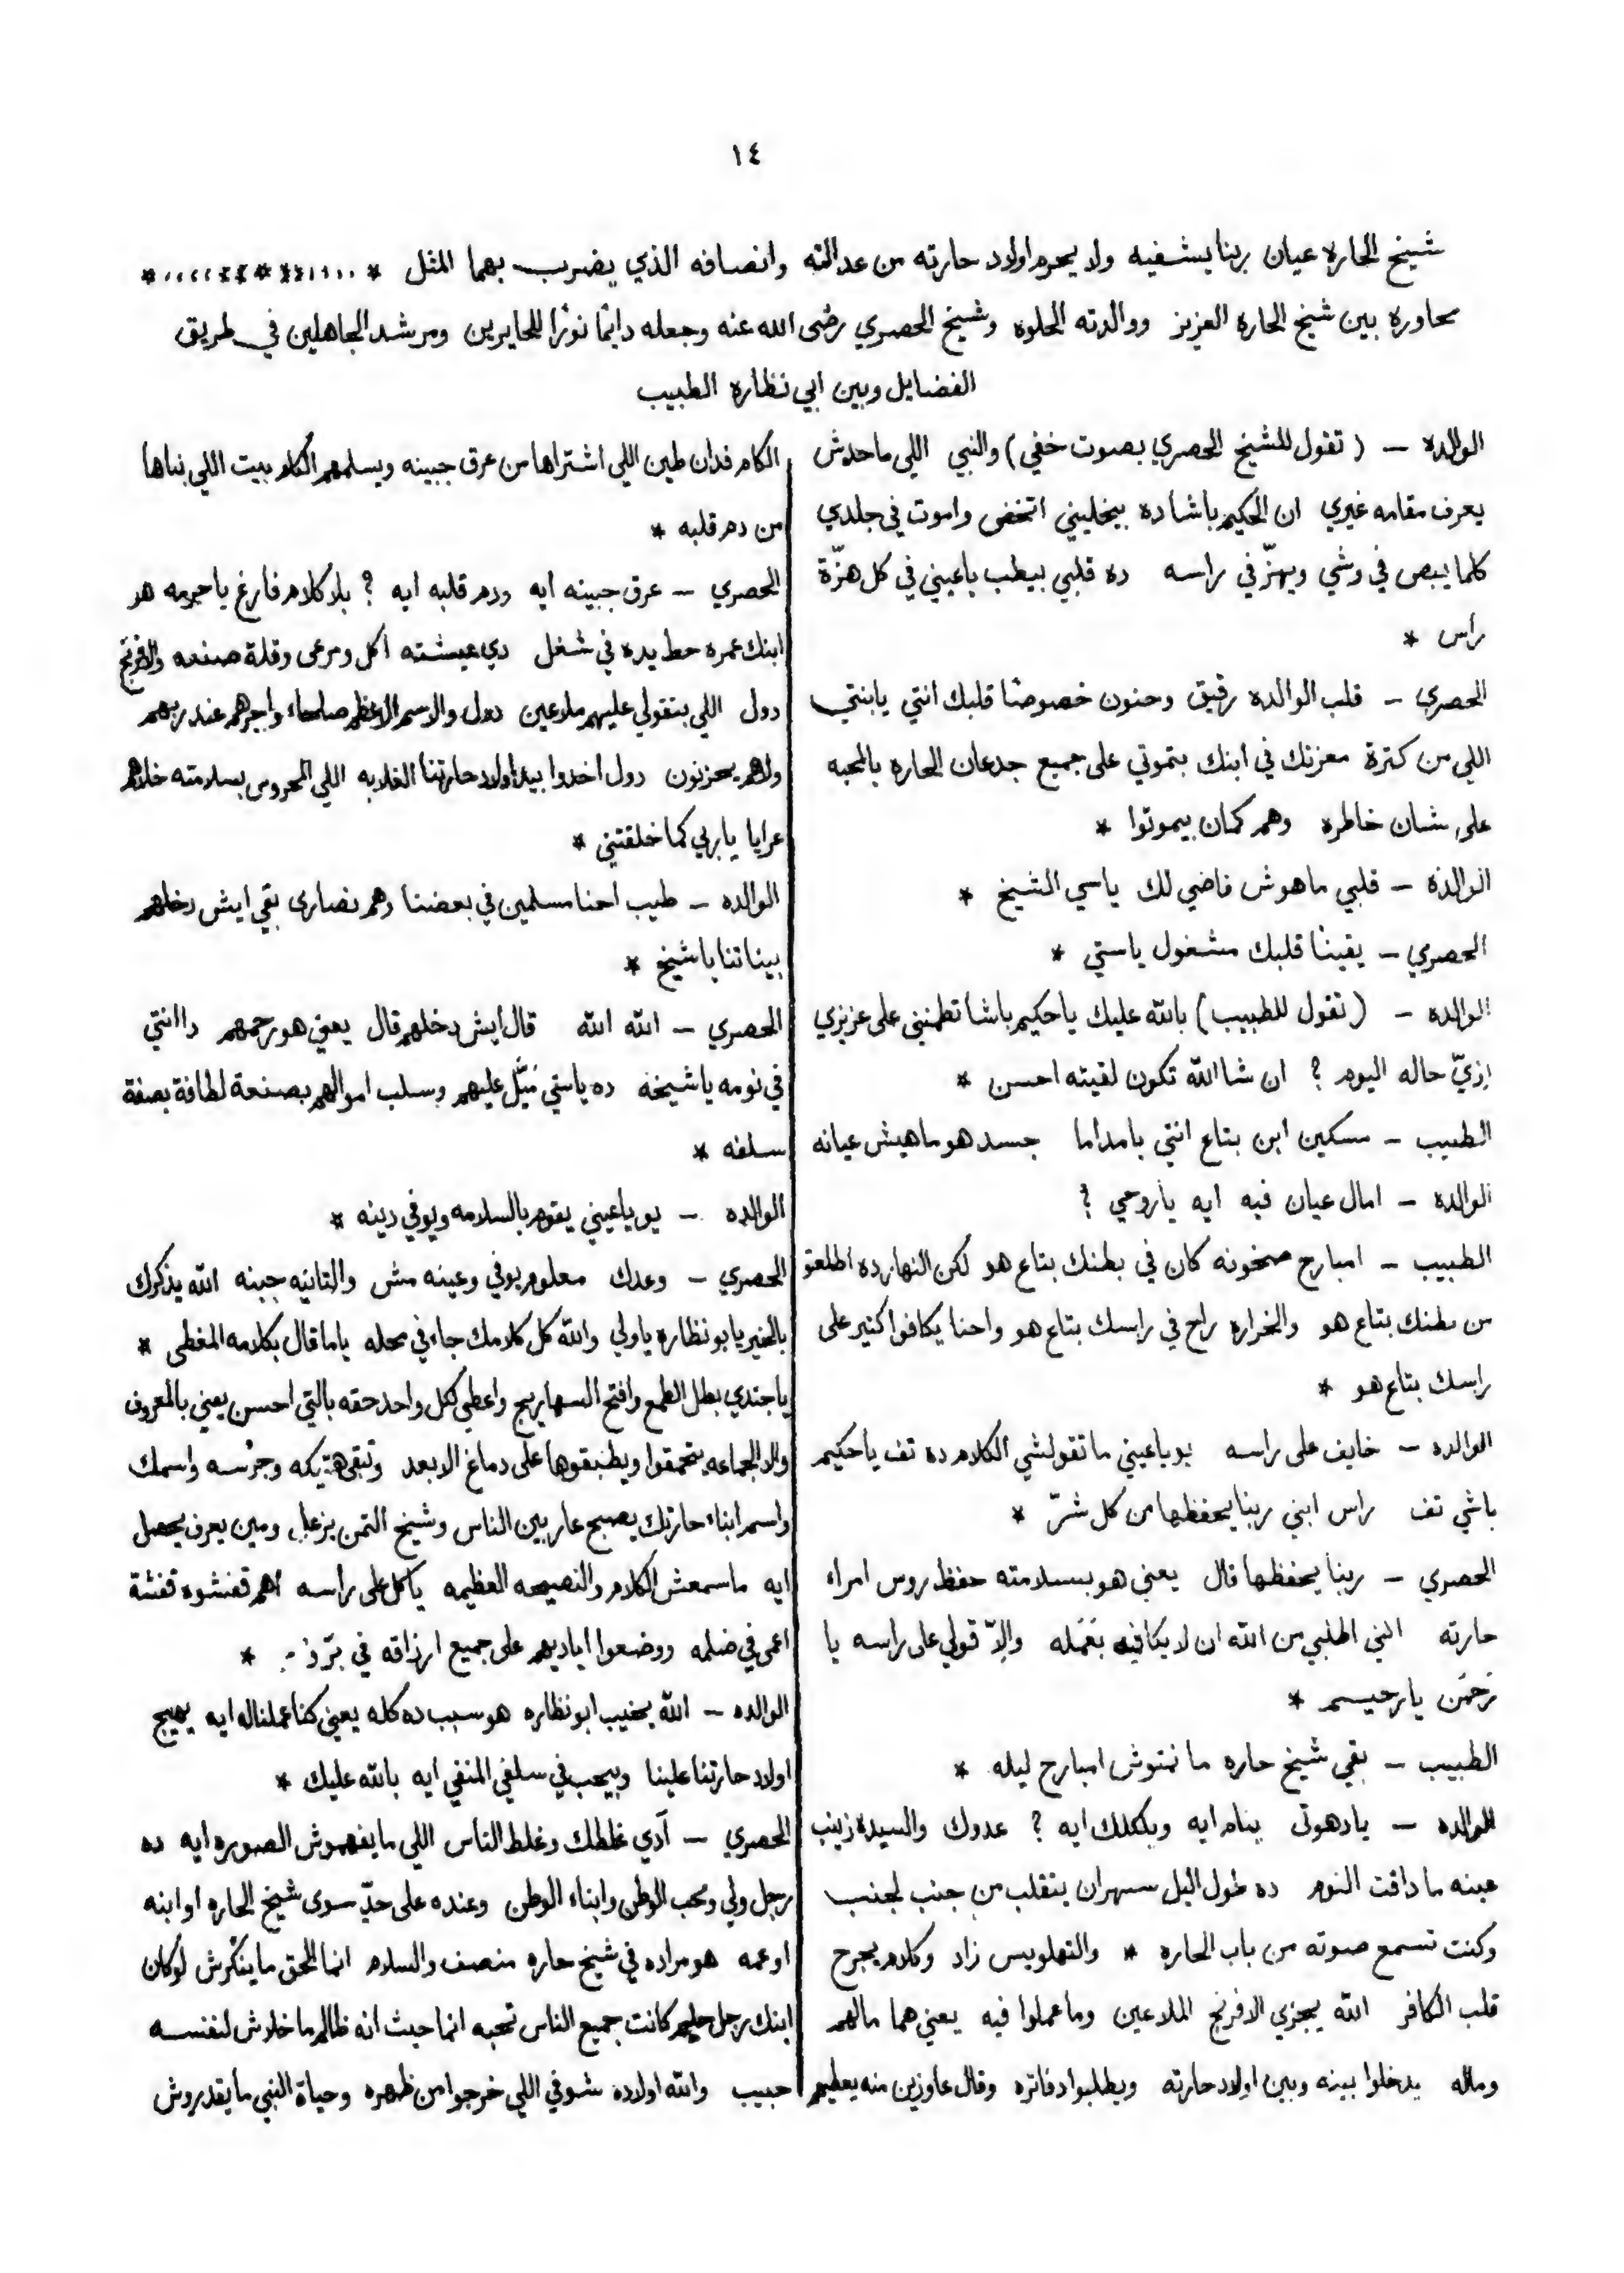 ١٤
شيخ الحاره عيان ربنا يشفيه ولا يحرم اولاد حارته من عدالته وانصافه الذي يضرب بهما المثل *
محاورة بين شيخ الحاره العزيز ووالدته الحلوه وشيخ الحصري رضى الله عنه وجعله دايمًا نورًا للحايرين ومرشد الجاهلين في طريق
الفضايل وبين ابي نظاره الطبيب
الوالده — (تقول للشيخ الحصري بصوت خفي) والنبي اللي ماحدش
يعرف مقامه غيري ان الحكيم باشا ده بيخليني اتخض واموت في جلدي
كلما يبص في وشي ويهزّ في راسه ده قلبي بيطب ياعيني في كل هزّة
رأس *
الحصري — قلب الوالده رقيق وحنون خصوصًا قلبك انتي يابنتي
اللي من كترة معزتك في ابنك بتموتي على جميع جدعان الحاره بالمحبه
على شان خاطره وهم كمان بيموتوا *
الوالده — قلبي ماهوش فاضي لك ياسي الشيخ *
الحصري — يقينًا قلبك مشغول ياستي *
الوالده — (تقول للطبيب) بالله عليك ياحكيم باشا تطمنني على عزيزي
ازيّ حاله اليوم ؟ ان شا الله تكون لقيته احسن *
الطبيب — مسكين ابن بتاع انتي يامداما جسد هو ماهيش عيانه
الوالده — امال عيان فيه ايه ياروحي ؟
الطبيب — امبارح صخونه كان في بطنك بتاع هو لكن النهارده اطلعتو
من بطنك بتاع هو والخراره راح في راسك بتاع هو واحنا يكافوا كتير على
راسك بتاع هو *
الوالده — خايف على راسه يوياعيني ماتقولشي الكلام ده تف ياحكيم
باشي تف راس ابني ربنا يحفظها من كل شرّ *
الحصري — ربنا يحفظها قال يعني هو بسلامته حفظ روس امراء
حارته انتي اطلبي من الله ان لا يكافيه بعَمَله والاّ قولي على راسه يا
رَحمَن يارحيم *
الطبيب — بقي شيخ حاره مانمتوش امبارح ليله *
الوالده — يادهوتى ينام ايه وبكللك ايه ؟ عدوك والسيده زينب
عينه ماداقت النوم ده طول اليل سهران يتقلب من جنب لجنب
وكنت تسمع صوته من باب الحاره * والتهلويس زاد وكلام يجرح
قلب الكافر الله يجزي الافرنج الملاعين وماعملوا فيه يعني هما مالهم
وماله يدخلوا بينه وبين اولاد حارته ويطلبوا دفاتره وقال عاوزين منه يعطيهم
الكام فدان طين اللي اشتراها من عرق جبينه ويسلمهم الكام بيت اللي بناها
من دم قلبه *
الحصري — عرق جبينه ايه ودم قلبه ايه ؟ بلا كلام فارغ ياحرمه هو
ابنك عمره حط يده في شغل دي عيشته اكل ومرعى وقلة صنعه والافرنج
دول اللي بتقولي عليهم ملاعين دول والاسم الاعظم صلحاء واجرهم عند ربهم
ولاهم يحزنون دول اخدوا بيد اولاد حارتنا الغلابه اللي المحروس بسلامته خلاهم
عرايا ياربي كما خلقتني *
الوالده — طيب احنا مسلمين في بعضنا وهم نصارى بقي ايش دخلهم
بيناتنا ياشيخ *
الحصري — الله الله قال ايش دخلهم قال يعني هو رحمهم دا انتي
في نومه ياشيخه ده ياستي نَيّل عليهم وسلب اموالهم بصنعة لطافة بصفة
سلفه *
الوالده — يوياعيني يقوم بالسلامه ويوفي دينه *
الحصري — وعدك معلوم يوفي وعينه مش والتانيه جبنه الله يذكرك
بالخير يابونظاره ياولي والله كل كلامك جاء في محله ياما قال بكلامه المغطى *
ياجندي بطل الطمع وافتح السهاريج واعطي لكل واحد حقه بالتي احسن يعني بالمعروف
والا الجماعه يتحمقوا ويطبقوها على دماغ الابعد وتبقى هتيكه وجرسه واسمك
واسم ابناء حارتك يصبح عار بين الناس وشيخ التمن يزعل ومين يعرف يحصل
ايه ماسمعش الكلام والنصيحه العظيمه ياكل على راسه اهم قفشوه قفشة
اعمى في ضلمه ووضعوا اياديهم على جميع ارزاقه في برّ *
الوالده — الله يخيب ابونظاره هو سبب ده كله يعني كنا عملناله ايه يهيج
اولاد حارتنا علينا وبيحب في سلفي المنفي ايه بالله عليك *
الحصري — آدي غلطك وغلط الناس اللي مايفهموش الصوره ايه ده
رجل ولي ومحب الوطن وابناء الوطن وعنده على حدّ سوى شيخ الحاره او ابنه
اوعمه هو مراده في شيخ حاره منصف والسلام انما الحق ماينكرش لوكان
ابنك رجل حليم كانت جميع الناس تحبه انما حيث انه ظالم ماخلاش لنفسه
حبيب والله اولاده شوفي اللي خرجوا من ظهره وحياة النبي مايقدروش